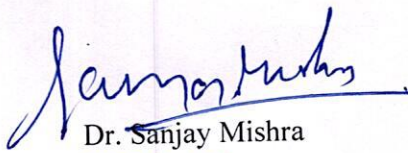 Sanjay Mishra
Dr. Sanjay Mishra